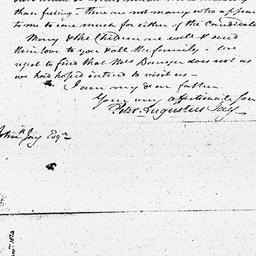 than feeling - there are not many who appear
to me to care much for either of the Candidates
Mary & the Children are well & send
their love to you & all the family - We
regret to find that Mrs Banyer does not as
we had hoped intend to visit us -
I am my dear father
Your very affectionate son
Peter Augustus Jay -
John Jay Esqr